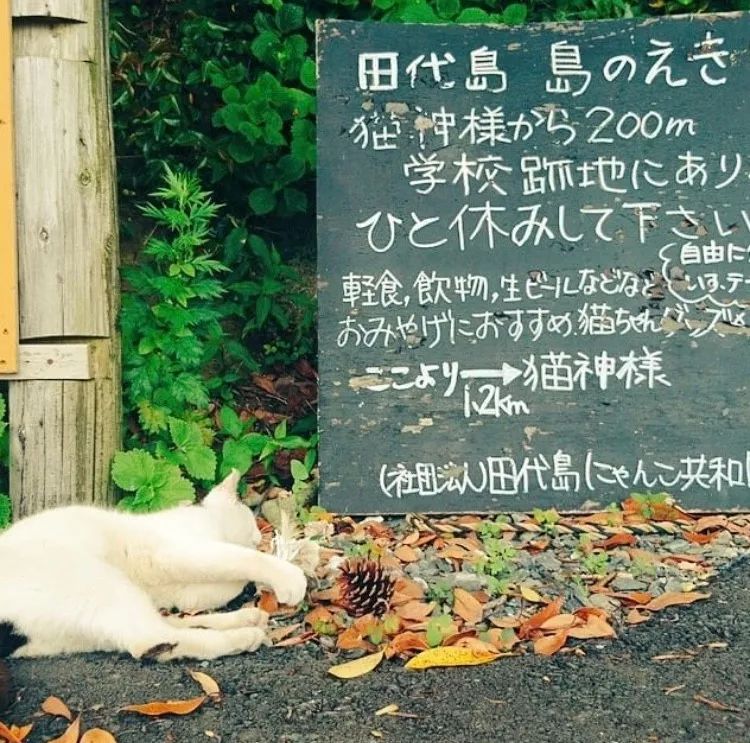 田代島 島のえき
猫神様から200m
学校跡地にあり
ひと休みして下さい
自由に
います、テ
軽食,飲物,生ビールなどなど
おみやげにおすすめ.猫ちゃんグッズ
ここより→猫神様
1.2km
(社団ジム)田代島にゃんこ共和